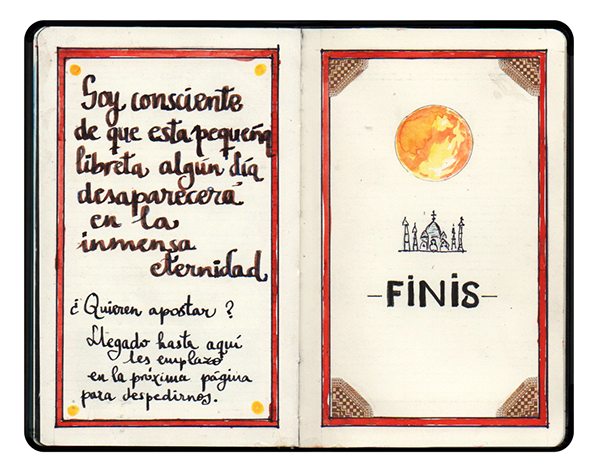 Soy consciente
de que esta pequeña
libreta algún día
desaparecerá
en la
inmensa
eternidad
¿Quieren apostar?
Llegado hasta aquí
les emplazo
en la próxima página
para despedirnos.
-FINIS-